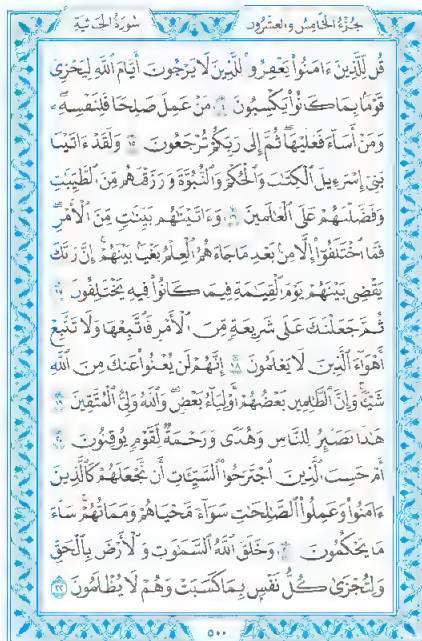 سُورَةُ الْجَاثِيَةِ
جُزْءُ الْخَامِسِ وَالْعِشْرُونَ
قُل لِّلَّذِينَ ءَامَنُوا۟ يَغْفِرُوا۟ لِلَّذِينَ لَا يَرْجُونَ أَيَّامَ ٱللَّهِ لِيَجْزِىَ
قَوْمًۢا بِمَا كَانُوا۟ يَكْسِبُونَ ١٤ مَنْ عَمِلَ صَٰلِحًا فَلِنَفْسِهِۦ
وَمَنْ أَسَآءَ فَعَلَيْهَا ۖ ثُمَّ إِلَىٰ رَبِّكُمْ تُرْجَعُونَ ١٥ وَلَقَدْ ءَاتَيْنَا
بَنِىٓ إِسْرَٰٓءِيلَ ٱلْكِتَٰبَ وَٱلْحُكْمَ وَٱلنُّبُوَّةَ وَرَزَقْنَٰهُم مِّنَ ٱلطَّيِّبَٰتِ
وَفَضَّلْنَٰهُمْ عَلَى ٱلْعَٰلَمِينَ ١٦ وَءَاتَيْنَٰهُم بَيِّنَٰتٍ مِّنَ ٱلْأَمْرِ ۖ
فَمَا ٱخْتَلَفُوٓا۟ إِلَّا مِنۢ بَعْدِ مَا جَآءَهُمُ ٱلْعِلْمُ بَغْيًۢا بَيْنَهُمْ ۚ إِنَّ رَبَّكَ
يَقْضِى بَيْنَهُمْ يَوْمَ ٱلْقِيَٰمَةِ فِيمَا كَانُوا۟ فِيهِ يَخْتَلِفُونَ ١٧
ثُمَّ جَعَلْنَٰكَ عَلَىٰ شَرِيعَةٍ مِّنَ ٱلْأَمْرِ فَٱتَّبِعْهَا وَلَا تَتَّبِعْ
أَهْوَآءَ ٱلَّذِينَ لَا يَعْلَمُونَ ١٨ إِنَّهُمْ لَن يُغْنُوا۟ عَنكَ مِنَ ٱللَّهِ
شَيْـًٔا ۚ وَإِنَّ ٱلظَّٰلِمِينَ بَعْضُهُمْ أَوْلِيَآءُ بَعْضٍ ۖ وَٱللَّهُ وَلِىُّ ٱلْمُتَّقِينَ ١٩
هَٰذَا بَصَٰٓئِرُ لِلنَّاسِ وَهُدًى وَرَحْمَةٌ لِّقَوْمٍ يُوقِنُونَ ٢٠
أَمْ حَسِبَ ٱلَّذِينَ ٱجْتَرَحُوا۟ ٱلسَّيِّـَٔاتِ أَن نَّجْعَلَهُمْ كَٱلَّذِينَ
ءَامَنُوا۟ وَعَمِلُوا۟ ٱلصَّٰلِحَٰتِ سَوَآءً مَّحْيَاهُمْ وَمَمَاتُهُمْ ۚ سَآءَ
مَا يَحْكُمُونَ ٢١ وَخَلَقَ ٱللَّهُ ٱلسَّمَٰوَٰتِ وَٱلْأَرْضَ بِٱلْحَقِّ
وَلِتُجْزَىٰ كُلُّ نَفْسٍۭ بِمَا كَسَبَتْ وَهُمْ لَا يُظْلَمُونَ ٢٢
٥٠٠